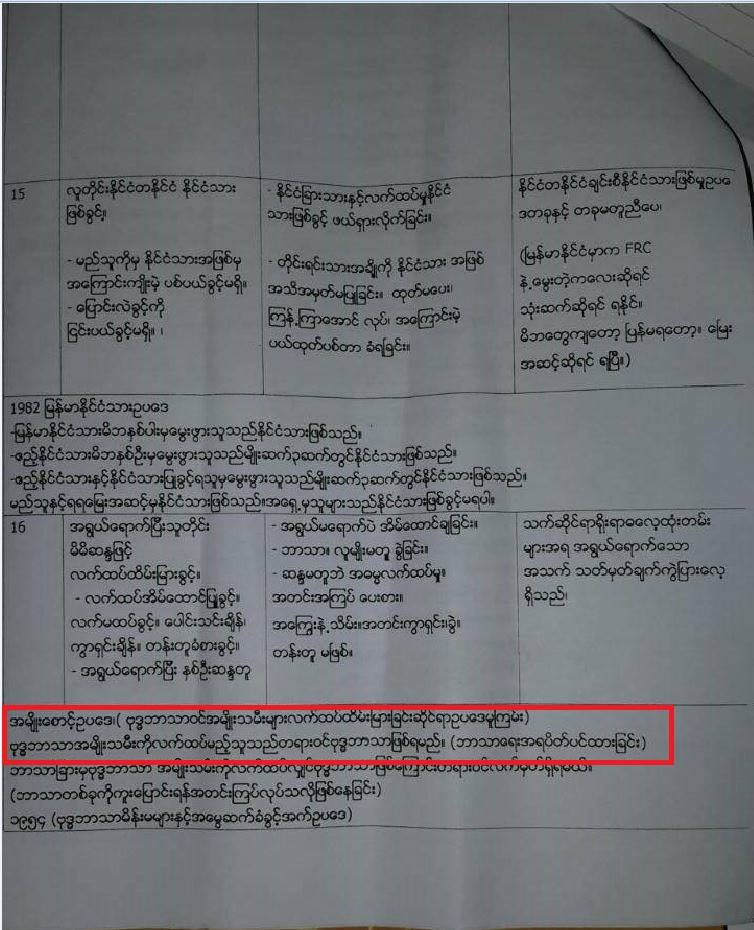 15
လူတိုင်းနိုင်ငံတနိုင်ငံ နိုင်ငံသား
ဖြစ်ခွင့်။
- မည်သူကိုမှ နိုင်ငံသားအဖြစ်မှ
အကြောင်းကျိုးမဲ့ ပစ်ပယ်ခွင့်မရှိ။
- ပြောင်းလဲခွင့်ကို
ငြင်းပယ်ခွင့်မရှိ။ ၊
- နိုင်ငံခြားသားနှင့်လက်ထပ်မှုနိုင်ငံ
သားဖြစ်ခွင့် ဖယ်ရှားလိုက်ခြင်း။
- တိုင်းရင်းသားအချို့ကို နိုင်ငံသား အဖြစ်
အသိအမှတ်မပြုခြင်း။ ထုတ်မပေး၊
ကြန့်ကြာအောင် လုပ်၊ အကြောင်းမဲ့
ပယ်ထုတ်ပစ်တာ ခံရခြင်း။
နိုင်ငံတနိုင်ငံချင်းစီနိုင်ငံသားဖြစ်မှုဥပဒေ
ဒတခုနှင့် တခုမတူညီပေ၊
(မြန်မာနိုင်ငံမှာက FRC
နဲ့မွေးတဲ့ကလေးဆိုရင်
သုံးဆက်ဆိုရင် ရနိုင်။
မိဘတွေကျတော့ ပြန်မရတော့။ မြေး
အဆင့်ဆိုရင် ရပြီ။)
1982 မြန်မာနိုင်ငံသားဥပဒေ
-မြန်မာနိုင်ငံသားမိဘနှစ်ပါးမှမွေးဖွားသူသည်နိုင်ငံသားဖြစ်သည်။
-ဧည့်နိုင်ငံသားမိဘနှစ်ဦးမှမွေးဖွားသူသည်မျိုးဆက်၃ဆက်တွင်နိုင်ငံသားဖြစ်သည်။
-ဧည့်နိုင်ငံသားနှင့်နိုင်ငံသားပြုခွင့်ရသူမှမွေးဖွားသူသည်မျိုးဆက်၃ဆက်တွင်နိုင်ငံသားဖြစ်သည်။
မည်သူနှင့်ရရမြေးအဆင့်မှနိုင်ငံသားဖြစ်သည်။အရှေ့မှသူများသည်နိုင်ငံသားဖြစ်ခွင့်မရပါ။
16
အရွယ်ရောက်ပြီးသူတိုင်း
မိမိဆန္ဒဖြင့်
လက်ထပ်ထိမ်းမြားခွင့်။
- လက်ထပ်အိမ်ထောင်ပြုခွင့်။
လက်မထပ်ခွင့်။ ပေါင်းသင်းချိန်၊
ကွာရှင်းချိန်။ တန်းတူခံစားခွင့်။
- အရွယ်ရောက်ပြီး နှစ်ဦးဆန္ဒတူ
- အရွယ်မရောက်ပဲ အိမ်ထောင်ချခြင်း။
- ဘာသာ။ လူမျိုးမတူ ခွဲခြင်း။
- ဆန္ဒမတူဘဲ အဓမ္မလက်ထပ်မှု။
အတင်းအကြပ် ပေးစား။
အကြွေးနဲ့ သိမ်း။အတင်းကွာရှင်း၊ခွဲ။
တန်းတူ မဖြစ်။
သက်ဆိုင်ရာရိုးရာဓလေ့ထုံးတမ်း
များအရ အရွယ်ရောက်သော
အသက် သတ်မှတ်ချက်ကွဲပြားလေ့
ရှိသည်၊
အမျိုးစောင့်ဥပဒေ၊( ဗုဒ္ဓဘာသာဝင်အမျိုးသမီးများလက်ထပ်ထိမ်းမြားခြင်းဆိုင်ရာဥပဒေမူကြမ်း)
ဗုဒ္ဓဘာသာအမျိုးသမီးကိုလက်ထပ်မည့်သူသည်တရားဝင်ဗုဒ္ဓဘာသာဖြစ်ရမည်။ (ဘာသာရေးအရပိတ်ပင်ထားခြင်း)
ဘာသာခြားမှဗုဒ္ဓဘာသာ အမျိုးသမီးကိုလက်ထပ်လျှင်ဗုဒ္ဓဘာသာဖြစ်ကြောင်းတရားဝင်လက်မှတ်ရှိရမယ်။
(ဘာသာတစ်ခုကိုကူးပြောင်းရန်အတင်းကြပ်လုပ်သလိုဖြစ်နေခြင်း)
၁၉၅၄ (ဗုဒ္ဓဘာသာမိန်းမများနှင့်အမွေဆက်ခံခွင့်အက်ဥပဒေ)